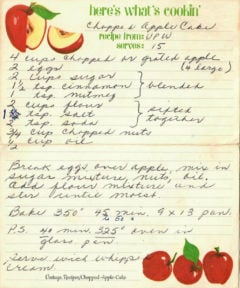 here's what's cookin'
Chopped Apple Cake
recipe from: VFW
serves: 15
4 cups chopped or grated apple
2 eggs (4 large)
2 cups sugar
1½ tsp. cinnamon } blended
tsp. nutmeg
2 cups flour
tsp. salt } sifted
2 tsp. soda together
3/4 cup chopped nuts
cup oil
Break eggs over apple, mix in
sugar mixture, nuts, oil,
Add flour mixture and
stir until moist.
Bake 350° 45 min. 9 x 13 pan.
P.S. 40 min. 325° oven in
glass pan.
Serve with whipped
cream.
Vintage Recipes/Chopped-Apple-Cake